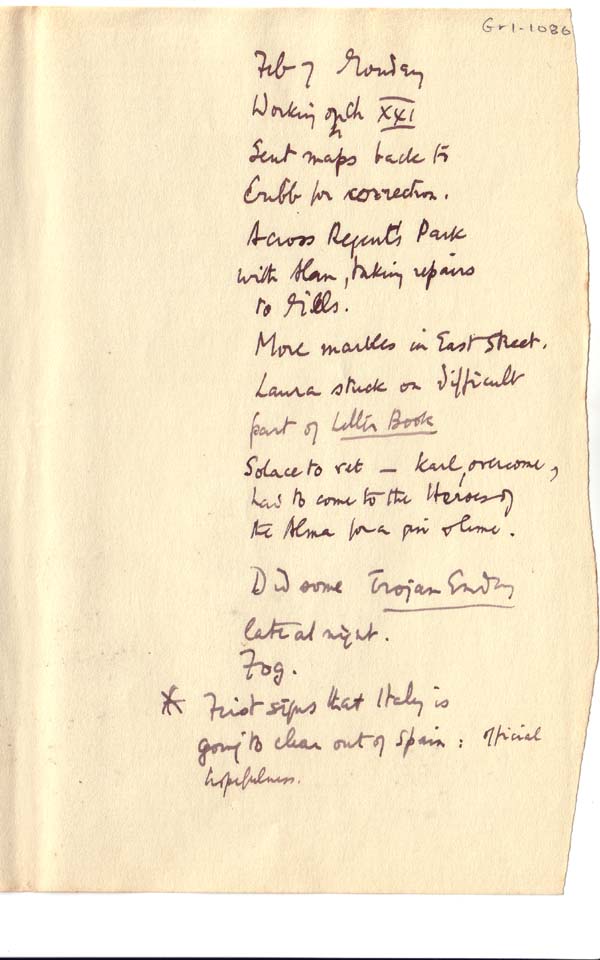 Gr1-1086
Feb 7 Monday
Working on Ch XXI
Sent maps back to
Cribb for correction.
Across Regent's Park
with Alan, taking repairs
to Gills.
More marbles in East Street.
Laura stuck on difficult
part of Letter Book
Solace to vet — Karl, overcome,
had to come to the Heroes of
the Alma for a gin & lime.
Did some Trojan Ending
late at night.
Fog.
* First signs that Italy is
going to clear out of Spain: official
hopefulness.